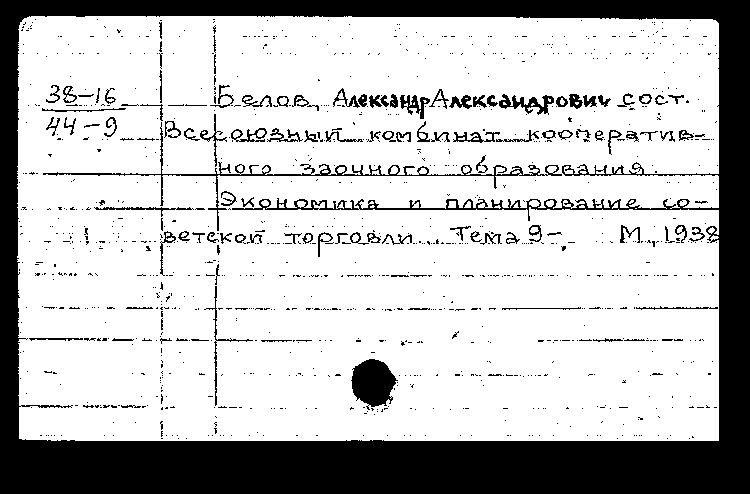 38-16
44-9
Белов, Александр Александрович сост.
Всесоюзный комбинат кооператив-
ного заочного образования.
Экономика и планирование со-
ветской торговли... Тема 9-. М., 1938